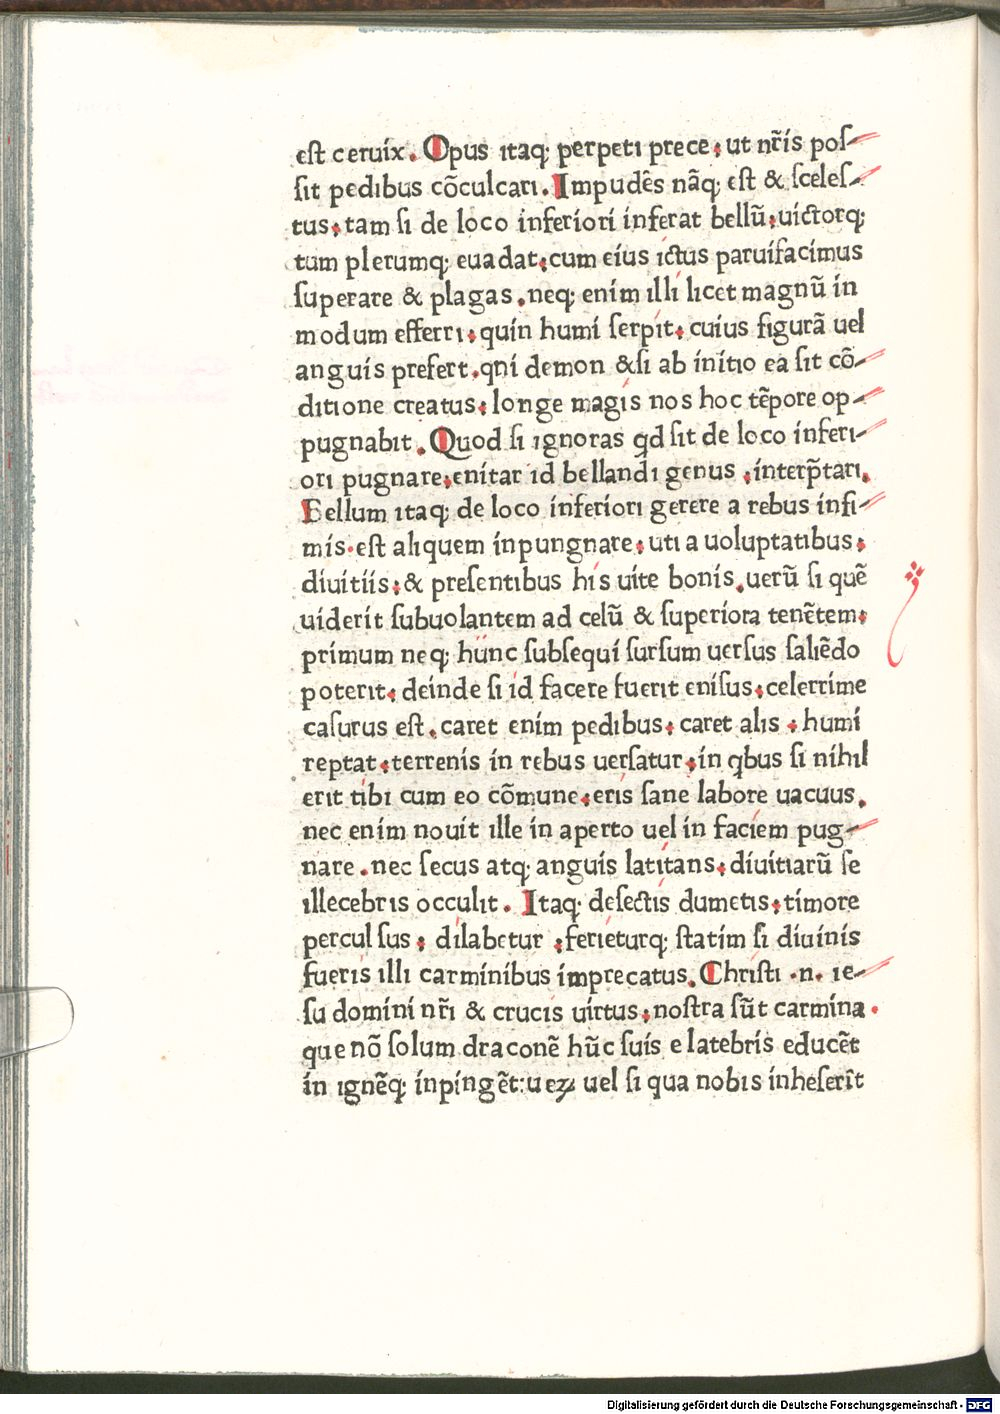 est ceruix. Opus itaq; perpeti prece: ut nr̃is pos-
sit pedibus cõculcari. Impudẽs nãq; est & sceles-
tus: tam si de loco inferiori inferat bellũ: uictorq;
tum plerumq; euadat: cum eius ictus paruifacimus
superare & plagas. neq; enim illi licet magnũ in
modum efferri: quin humi serpit: cuius figurã uel
anguis prefert. qni demon & si ab initio ea sit cõ-
ditione creatus: longe magis nos hoc tẽpore op-
pugnabit. Quod si ignoras qd sit de loco inferi-
ori pugnare: enitar id bellandi genus. interp̃tari.
Bellum itaq; de loco inferiori gerere a rebus infi-
mis. est aliquem inpungnare: uti a uoluptatibus:
diuitiis: & presentibus his uite bonis. uerũ si quẽ
uiderit subuolantem ad celũ & superiora tenẽtem:
primum neq; hunc subsequi sursum uersus saliẽdo
poterit: deinde si id facere fuerit enisus: celerrime
casurus est. caret enim pedibus: caret alis: humi
reptat: terrenis in rebus uersatur: in qbus si nihil
erit tibi cum eo cõmune: eris sane labore uacuus.
nec enim nouit ille in aperto uel in faciem pug-
nare. nec secus atq; anguis latitans: diuitiarũ se
illecebris occulit. Itaq; desectis dumetis: timore
perculsus: dilabetur: ferieturq; statim si diuinis
fueris illi carminibus imprecatus. Christi .n. ie-
su domini nr̃i & crucis uirtus: nostra sũt carmina.
que nõ solum draconẽ hũc suis e latebris educẽt
in ignẽq; inpingẽt: ueꝝ uel si qua nobis inheserĩt
Digitalisierung gefördert durch die Deutsche Forschungsgemeinschaft - DFG